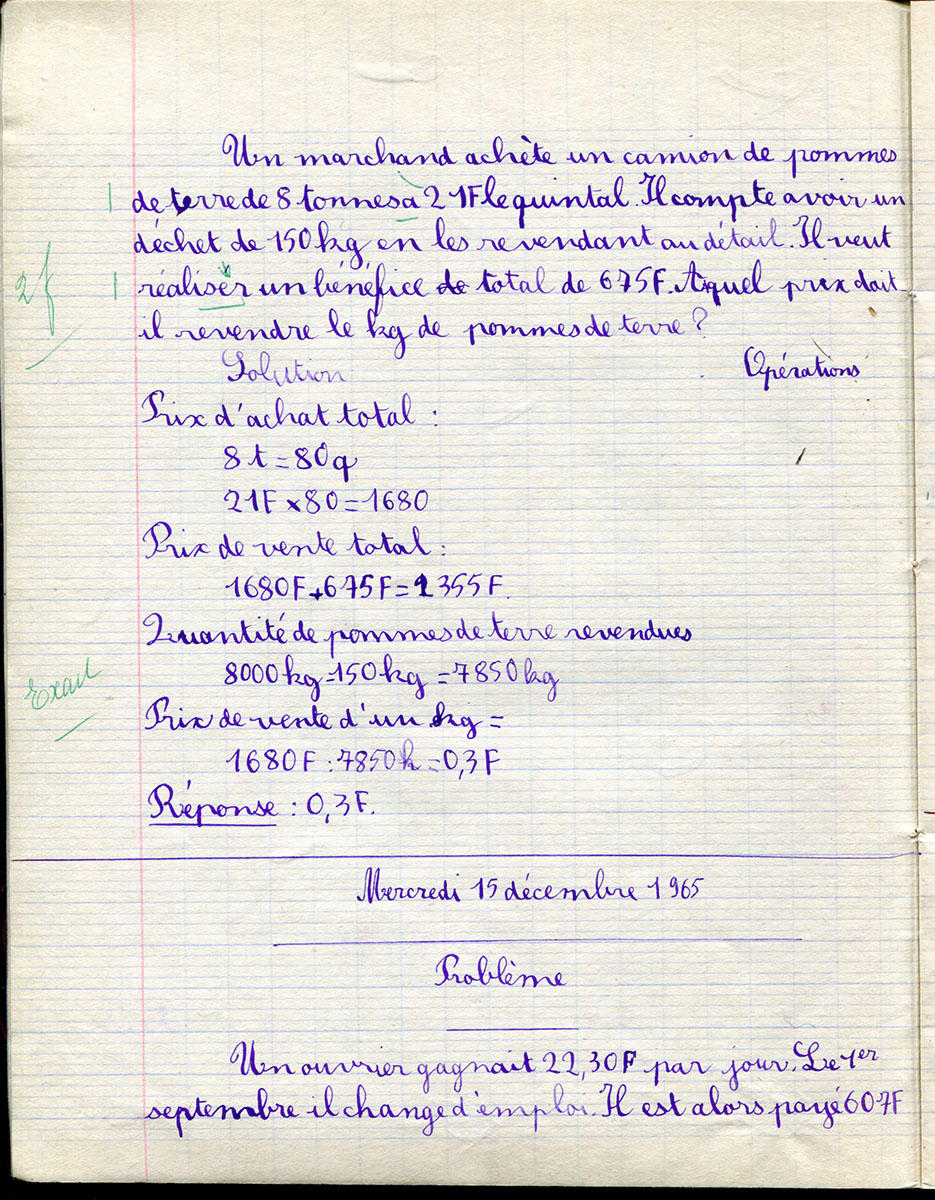 Un marchand achète un camion de pommes
1 de terre de 8 tonnes à 21F le quintal. Il compte avoir un
déchet de 150kg en les revendant au détail. Il veut
2f 1 réaliser un bénéfice de total de 675F. A quel prix doit-
il revendre le kg de pommes de terre ?
Solution Opérations
Prix d'achat total :
8 t = 80q
21F × 80 = 1680
Prix de vente total :
1680F + 675F = 2355F.
Quantité de pommes de terre revendues
8000kg - 150kg = 7850kg
Exact
Prix de vente d'un kg =
1680F : 7850k = 0,3F
Réponse : 0,3F.
Mercredi 15 décembre 1965
Problème
Un ouvrier gagnait 22,30F par jour. Le 1er
septembre il change d'emploi. Il est alors payé 607F